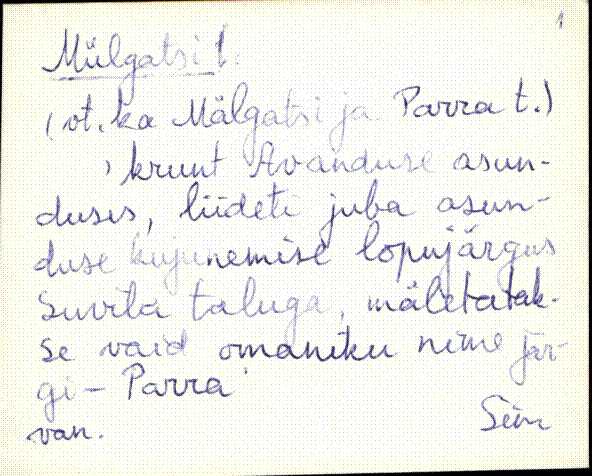 1
Mülgatsi t.
(vt. ka Mälgatsi ja Parra t.)
, krunt Avanduse asun-
duses, liideti juba asun-
duse kujunemise lõpujärgus
Suvila taluga, mäletatak-
se vaid omaniku nime jär-
gi – Parra
van. Siin